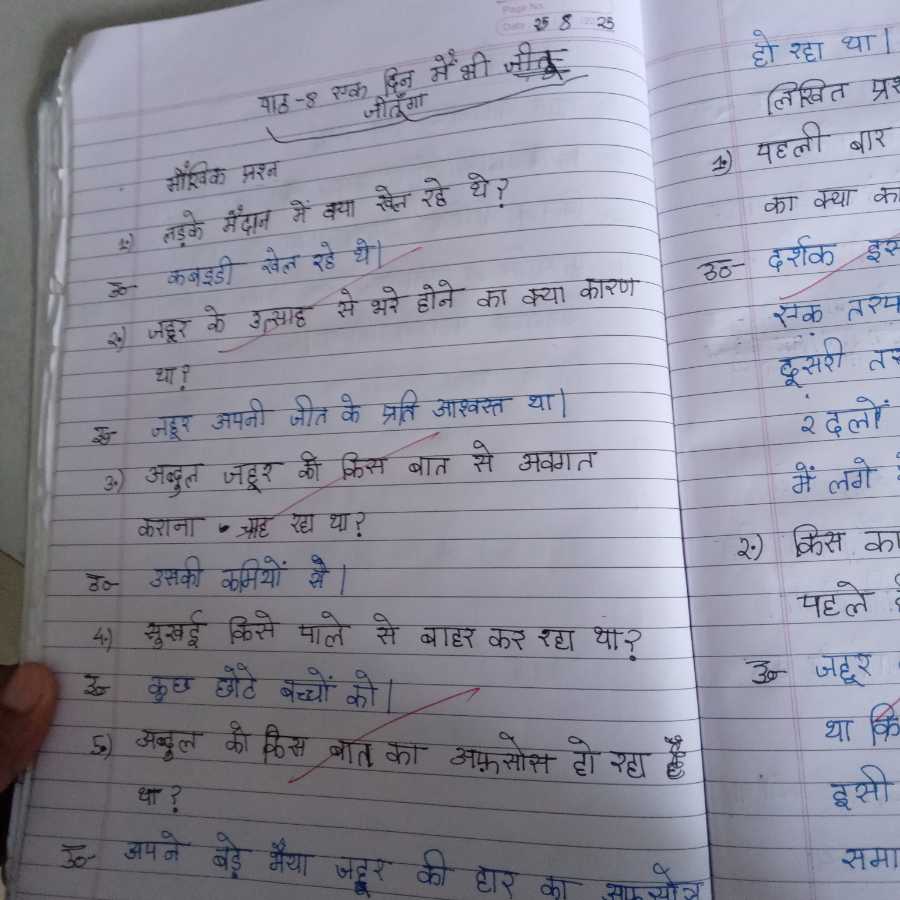 Page No.
Date 25 8 25
पाठ-8 एक दिन मैं भी जीतू
जीतूँगा
मौखिक प्रश्न
1.) लड़के मैदान में क्या खेल रहे थे?
उ०- कबड्डी खेल रहे थे।
२.) जहूर के उत्साह से भरे होने का क्या कारण
था?
उ०- जहूर अपनी जीत के प्रति आश्वस्त था।
3.) अब्दुल जहूर को किस बात से अवगत
कराना चाह रहा था?
उ०- उसकी कमियों से।
4.) सुखई किसे पाले से बाहर कर रहा था?
उ०- कुछ छोटे बच्चों को।
5.) अब्दुल को किस बात का अफ़सोस हो रहा है
था?
उ०- अपने बड़े भैया जहूर की हार का
हो रहा था।
लिखित प्रश
1.) पहली बार
का क्या का
उ०- दर्शक इस
एक तरफ
दूसरी तर
२ दलों
में लगे
२.) किस का
पहले
उ०- जहूर
था कि
इसी
समा